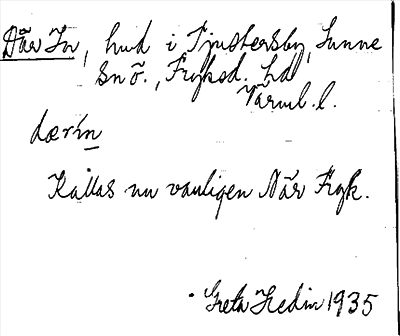 Där In, hud i Tjustersby, Sunne
snö., Fryksd. hd
Värml. l.
dærin
Kallas nu vanligen När Fryk.
Greta Hedin 1935